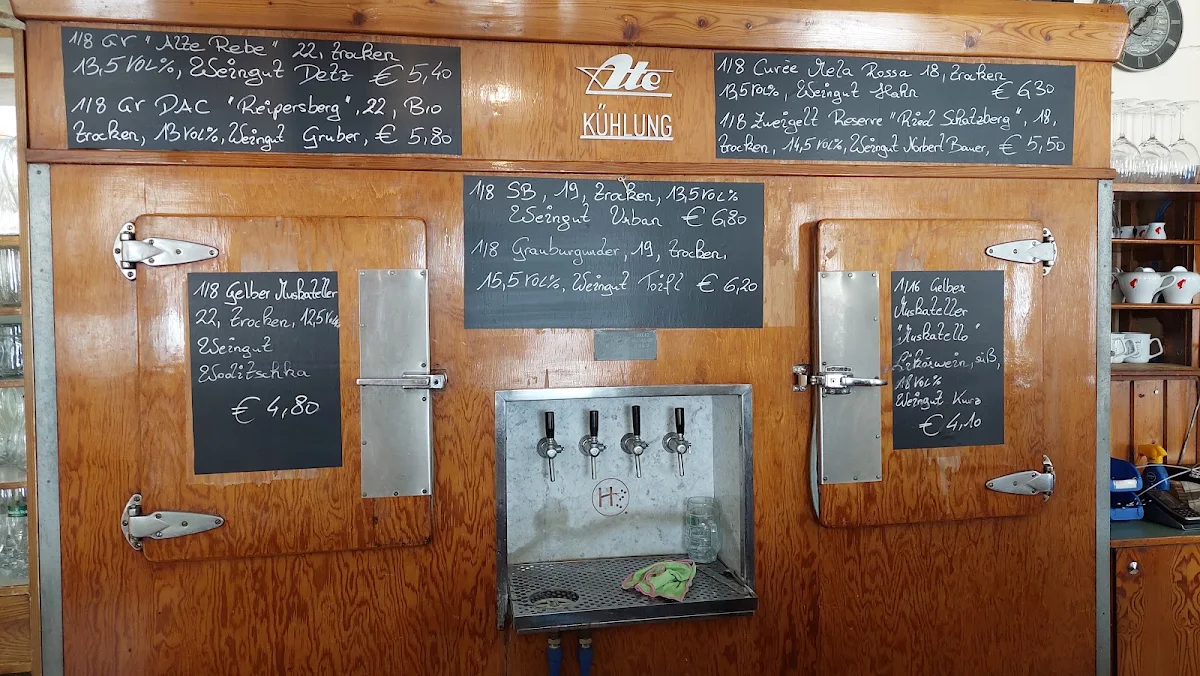 1/8 GV "Alte Rebe" 22, trocken
13,5 VOL%, Weingut Detz € 5,40
1/8 GV DAC "Reipersberg", 22, BIO
trocken, 13 VOL%, Weingut Gruber, € 5,80
Ate
KÜHLUNG
1/8 Cuvée Mela Rossa 18, trocken
13,5 VOL%, Weingut Hahn € 6,30
1/8 Zweigelt Reserve "Ried Schatzberg", 18,
trocken, 14,5 VOL%, Weingut Norbert Bauer, € 5,50
1/8 SB, 19, trocken, 13,5 VOL%
Weingut Urban € 6,80
1/8 Grauburgunder, 19, trocken,
15,5 VOL%, Weingut Toifl € 6,20
1/8 Gelber Muskateller
22, trocken, 12,5 Vol%
Weingut
Woditschka
€ 4,80
1/16 Gelber
Muskateller
"Muskatello"
Likörwein, süß,
18 VOL%
Weingut Kurz
€ 4,10
H